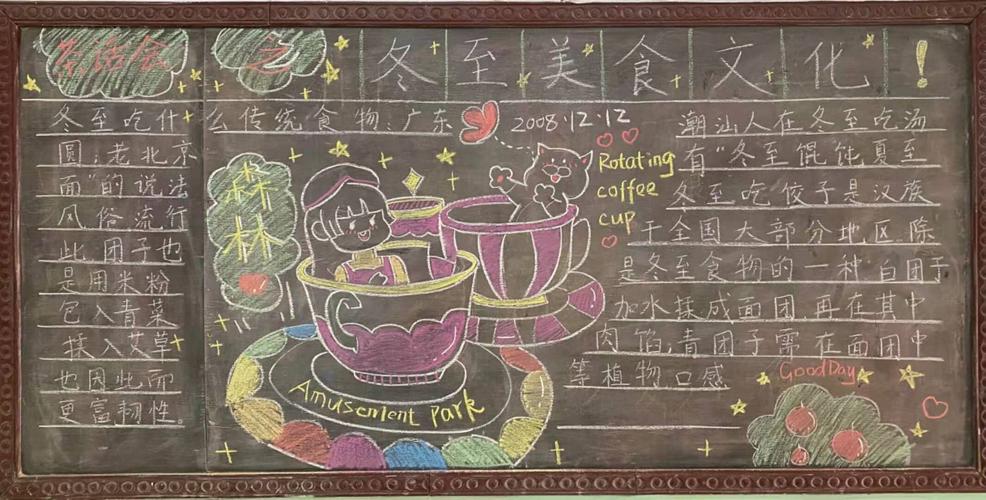 茶话会之冬至美食文化!
冬至吃什么传统食物:广东潮汕人在冬至吃汤
圆;老北京有"冬至馄饨夏至
面"的说法冬至吃饺子是汉族
风俗流行于全国大部分地区除
此团子也是冬至食物的一种白团子
是用米粉加水揉成面团,再在其中
包入青菜肉馅;青团子需在面团中
揉入艾草等植物口感
也因此而
更富韧性。
2008.12.12
Rotating
coffee
cup
森
林
Amusement Park
GoodDay